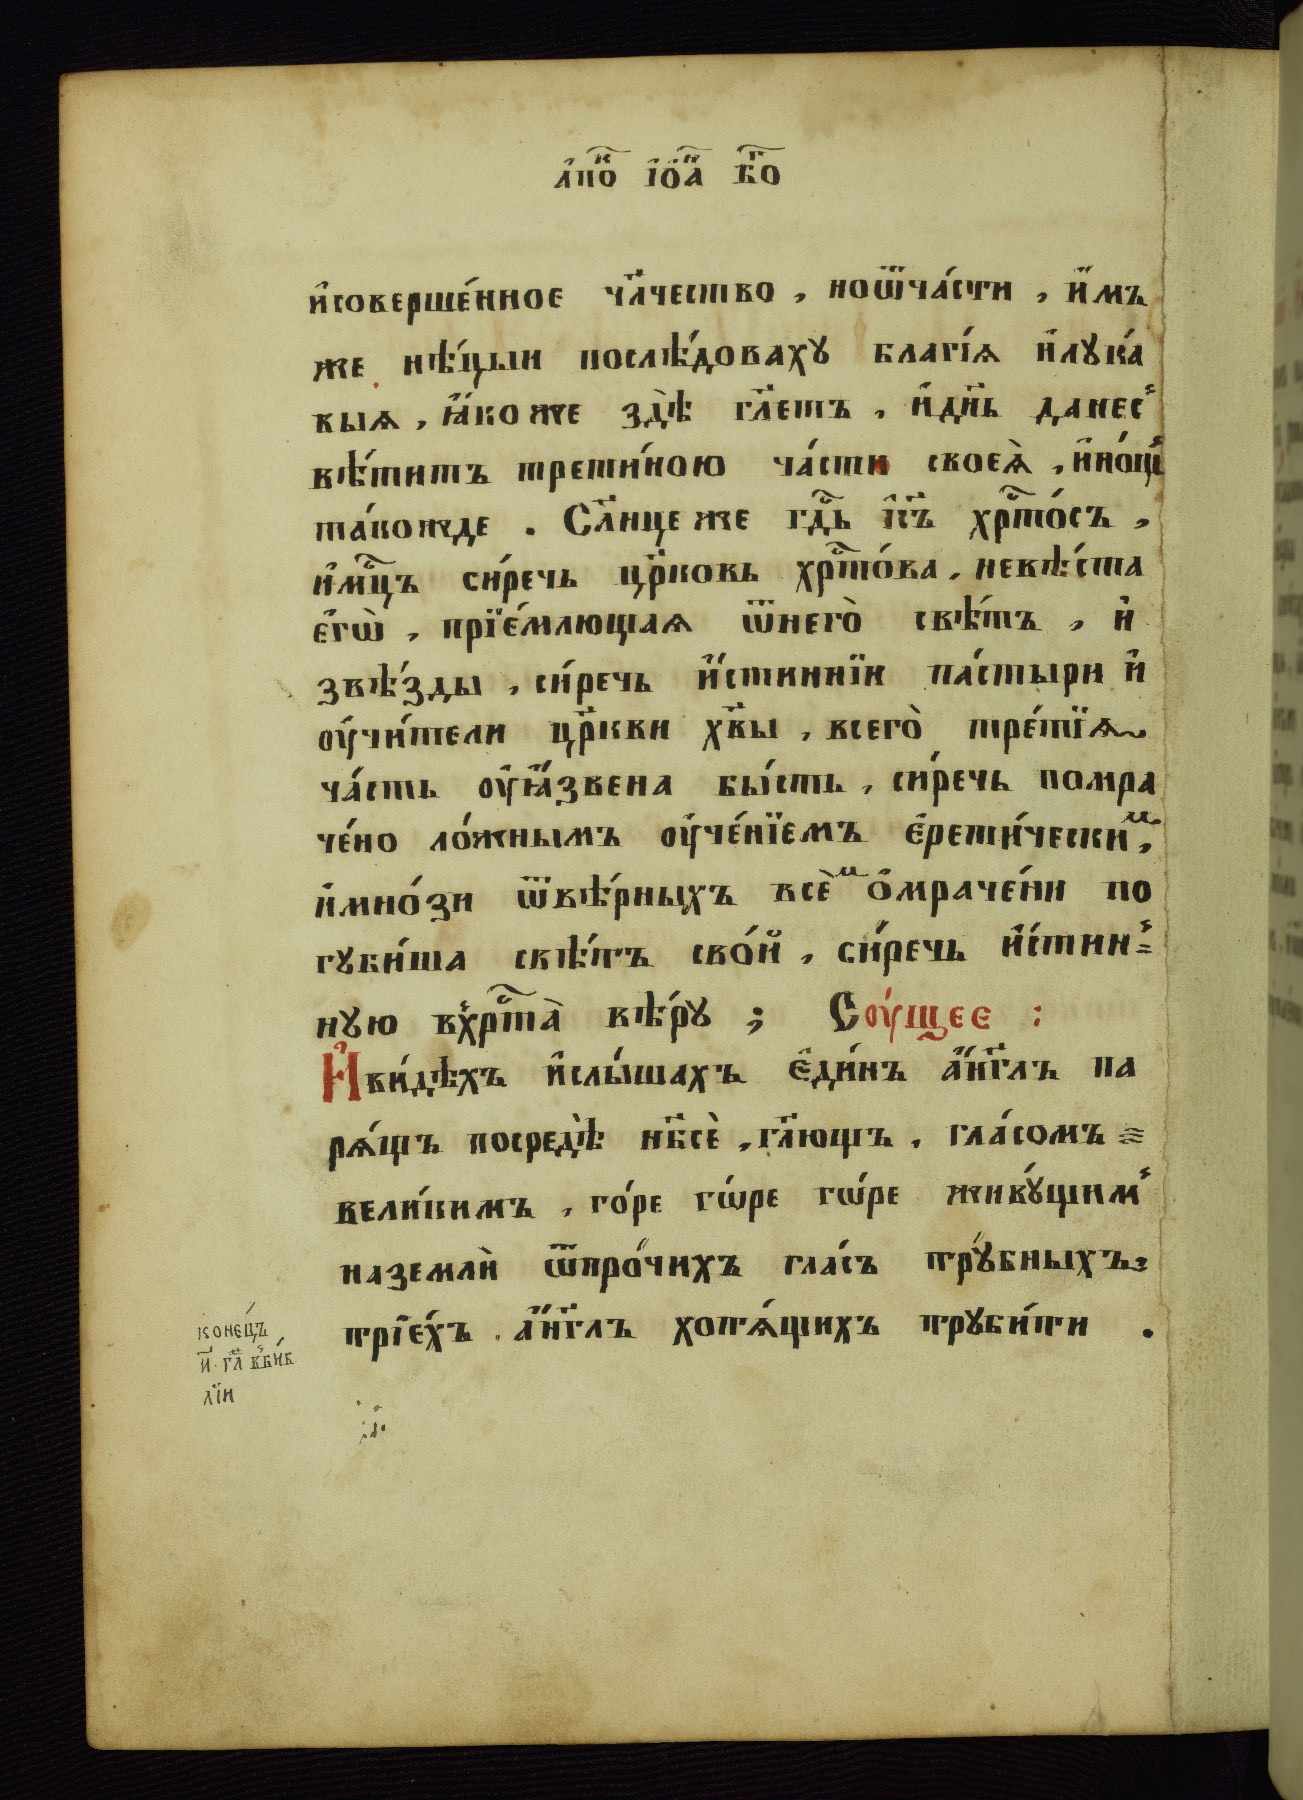 а҆по́к і҆ѡ́а бг҃о
и҆соверше́нное чл҃чество, ноѿча́сти, и҆́мъ
же нѣ́цыи послѣ́доваху благі́я и҆лука́
выѧ, ꙗ҆́коже здѣ̀ гл҃етъ, и҆дн҃ь данес
вѣ́титъ трети́ною ча́сти своеѧ̀, и҆но́щ
та́кожде. Сл҃нцеже гдⷭ҇ь на́шъ хрⷭ҇то́съ,
и҆мцⷭ҇ъ си́речь цр҃ковь хрⷭ҇то́ва, невѣ́ста
є҆гѡ̀, прїе́млющаѧ ѿнего̀ свѣ́тъ, и҆
звѣ́зды, си́речь и҆́стиннїи па́стыри и҆
ᲂу҆чи́тели цр҃кви хв҃ы, всего̀ тре́тїѧ
ча́сть ᲂу҆ꙗ҆́звена бы́сть, си́речь помра
че́но ло́жнымъ ᲂу҆че́нїемъ є҆рети́ческиⷨ,
и҆мно́зи ѿвѣ́рныхъ всеⷨ̀ ѻ҆мраче́ни по
губи́ша свѣ́тъ сво́й, си́речь и҆́стин=
ную вхрⷭ҇та̀ вѣ́ру; Сᲂу́щее :
И҆ви́дѣхъ и҆слы́шахъ є҆ди́нъ а҆́нг҃лъ па
рѧ́щъ посредѣ̀ нб҃сѐ, гл҃ющъ, гла́сомъ
вели́кимъ, го́ре гѡ́ре гѡ́ре живу́щим
наземлѝ ѿпро́чихъ гла́съ тру́бныхъ
трїе́хъ, а҆́нг҃лъ хотѧ́щихъ труби́ти .
коне́цъ
и҃ · гл҃ вби́б
лїи